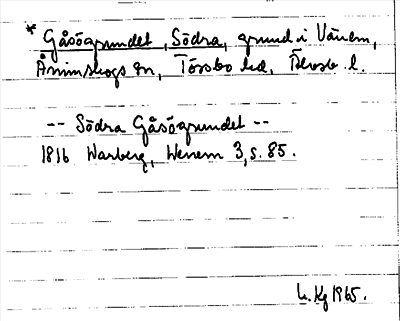 * Gåsögrundet, Södra, grund i Vänern,
Ånimskogs sn, Tössbo hd, Älvsb. l.
-- Södra Gåsögrundet --
1816 Warberg, Wenern 3, s. 85.
1965.